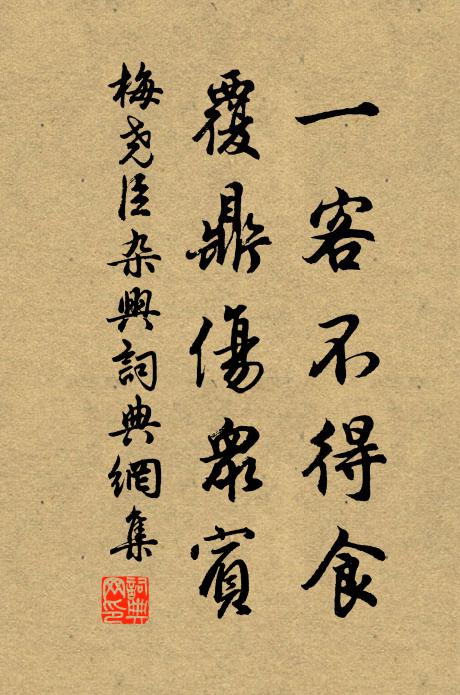 一客不得食
覆鼎傷衆賓
梅堯臣杂興詞典網集
詞典网印